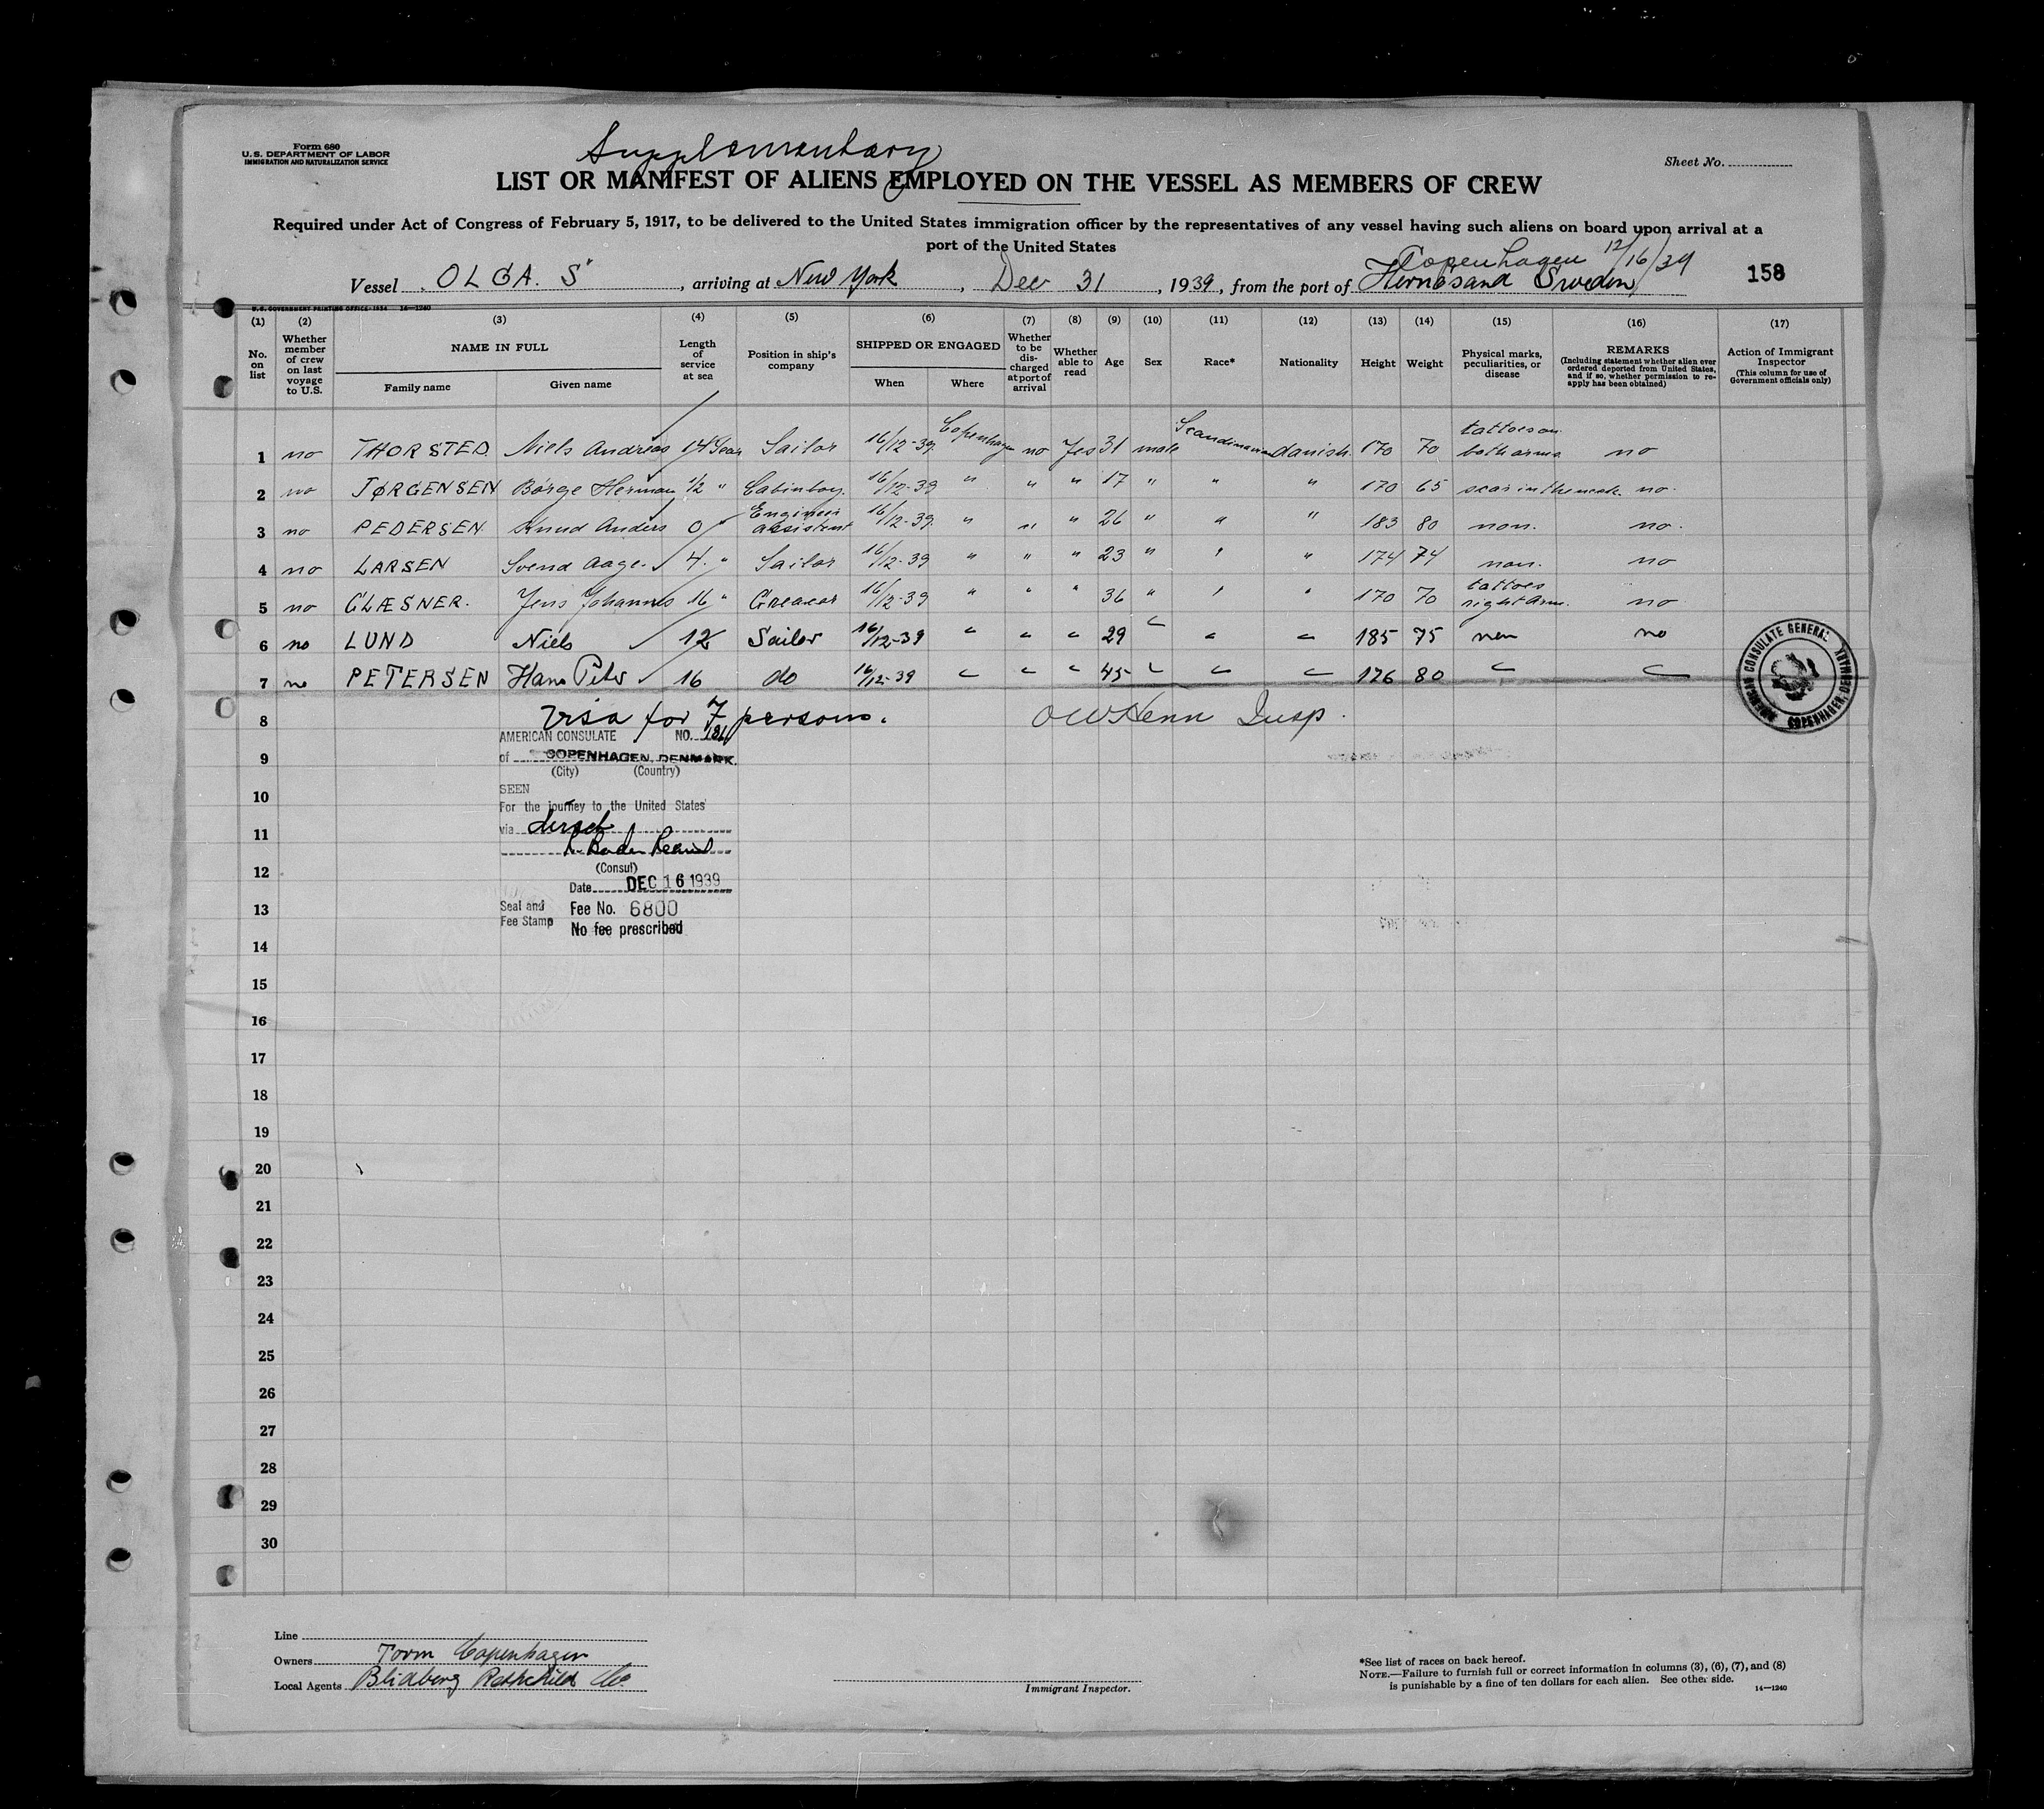 Form 680
U. S. DEPARTMENT OF LABOR
IMMIGRATION AND NATURALIZATION SERVICE
Supplementary
Sheet No.
LIST OR MANIFEST OF ALIENS EMPLOYED ON THE VESSEL AS MEMBERS OF CREW
Required under Act of Congress of February 5, 1917, to be delivered to the United States immigration officer by the representatives of any vessel having such aliens on board upon arrival at a
port of the United States
Copenhagen 12/16/39
Vessel OLGA. S, arriving at New York, Dec 31, 1939, from the port of Hernösand Sweden
158
U. S. GOVERNMENT PRINTING OFFICE-1934 14—1240
(1) (2) (3) (4) (5) (6) (7) (8) (9) (10) (11) (12) (13) (14) (15) (16) (17)
No. on list
Whether member of crew on last voyage to U.S.
NAME IN FULL
Family name
Given name
Length of service at sea
Position in ship's company
SHIPPED OR ENGAGED
When
Where
Whether to be discharged at port of arrival
Whether able to read
Age
Sex
Race*
Nationality
Height
Weight
Physical marks, peculiarities, or disease
REMARKS
(Including statement whether alien ever ordered deported from United States, and if so, whether permission to reapply has been obtained)
Action of Immigrant Inspector
(This column for use of Government officials only)
1 no THORSTED Niels Andreas 14 Sailor 16/12-39 Copenhagen no Yes 31 male Scandinavian danish 170 70 tattoes on both arms no
2 no JØRGENSEN Börge Herman 1/2 " Cabinboy. 16/12-39 " " " 17 " " " 170 65 scar in the neck no.
3 no PEDERSEN Knud Anders 0 " Engineer assistent 16/12-39. " " " 26 " " " 183 80 non. no.
4 no LARSEN Svend Aage. 4. " Sailor 16/12-39 " " " 23 " " " 174 74 non. no
5 no GLÆSNER. Jens Johannes 16 " Greaser 16/12-39 " " " 36 " " " 170 70 tattoes right arm. no
6 no LUND Niels 12 Sailor 16/12-39 " " " 29 " " " 185 75 non no
7 no PETERSEN Hans Peter 16 do 16/12-39 " " " 45 " " " 176 80 " "
8 Visa for 7 persons. OW Henn Insp.
AMERICAN CONSULATE NO.
9 of COPENHAGEN, DENMARK.
(City) (Country)
SEEN
10 For the journey to the United States
11 via direct
12 (Consul)
Date DEC 16 1939
13 Seal and Fee Stamp Fee No. 6800
No fee prescribed
AMERICAN CONSULATE GENERAL COPENHAGEN, DENMARK
14
15
16
17
18
19
20
21
22
23
24
25
26
27
28
29
30
Line
Owners Torm Copenhagen
Local Agents Blidberg Rothchild Co
Immigrant Inspector.
*See list of races on back hereof.
NOTE.—Failure to furnish full or correct information in columns (3), (6), (7), and (8)
is punishable by a fine of ten dollars for each alien. See other side.
14—1240